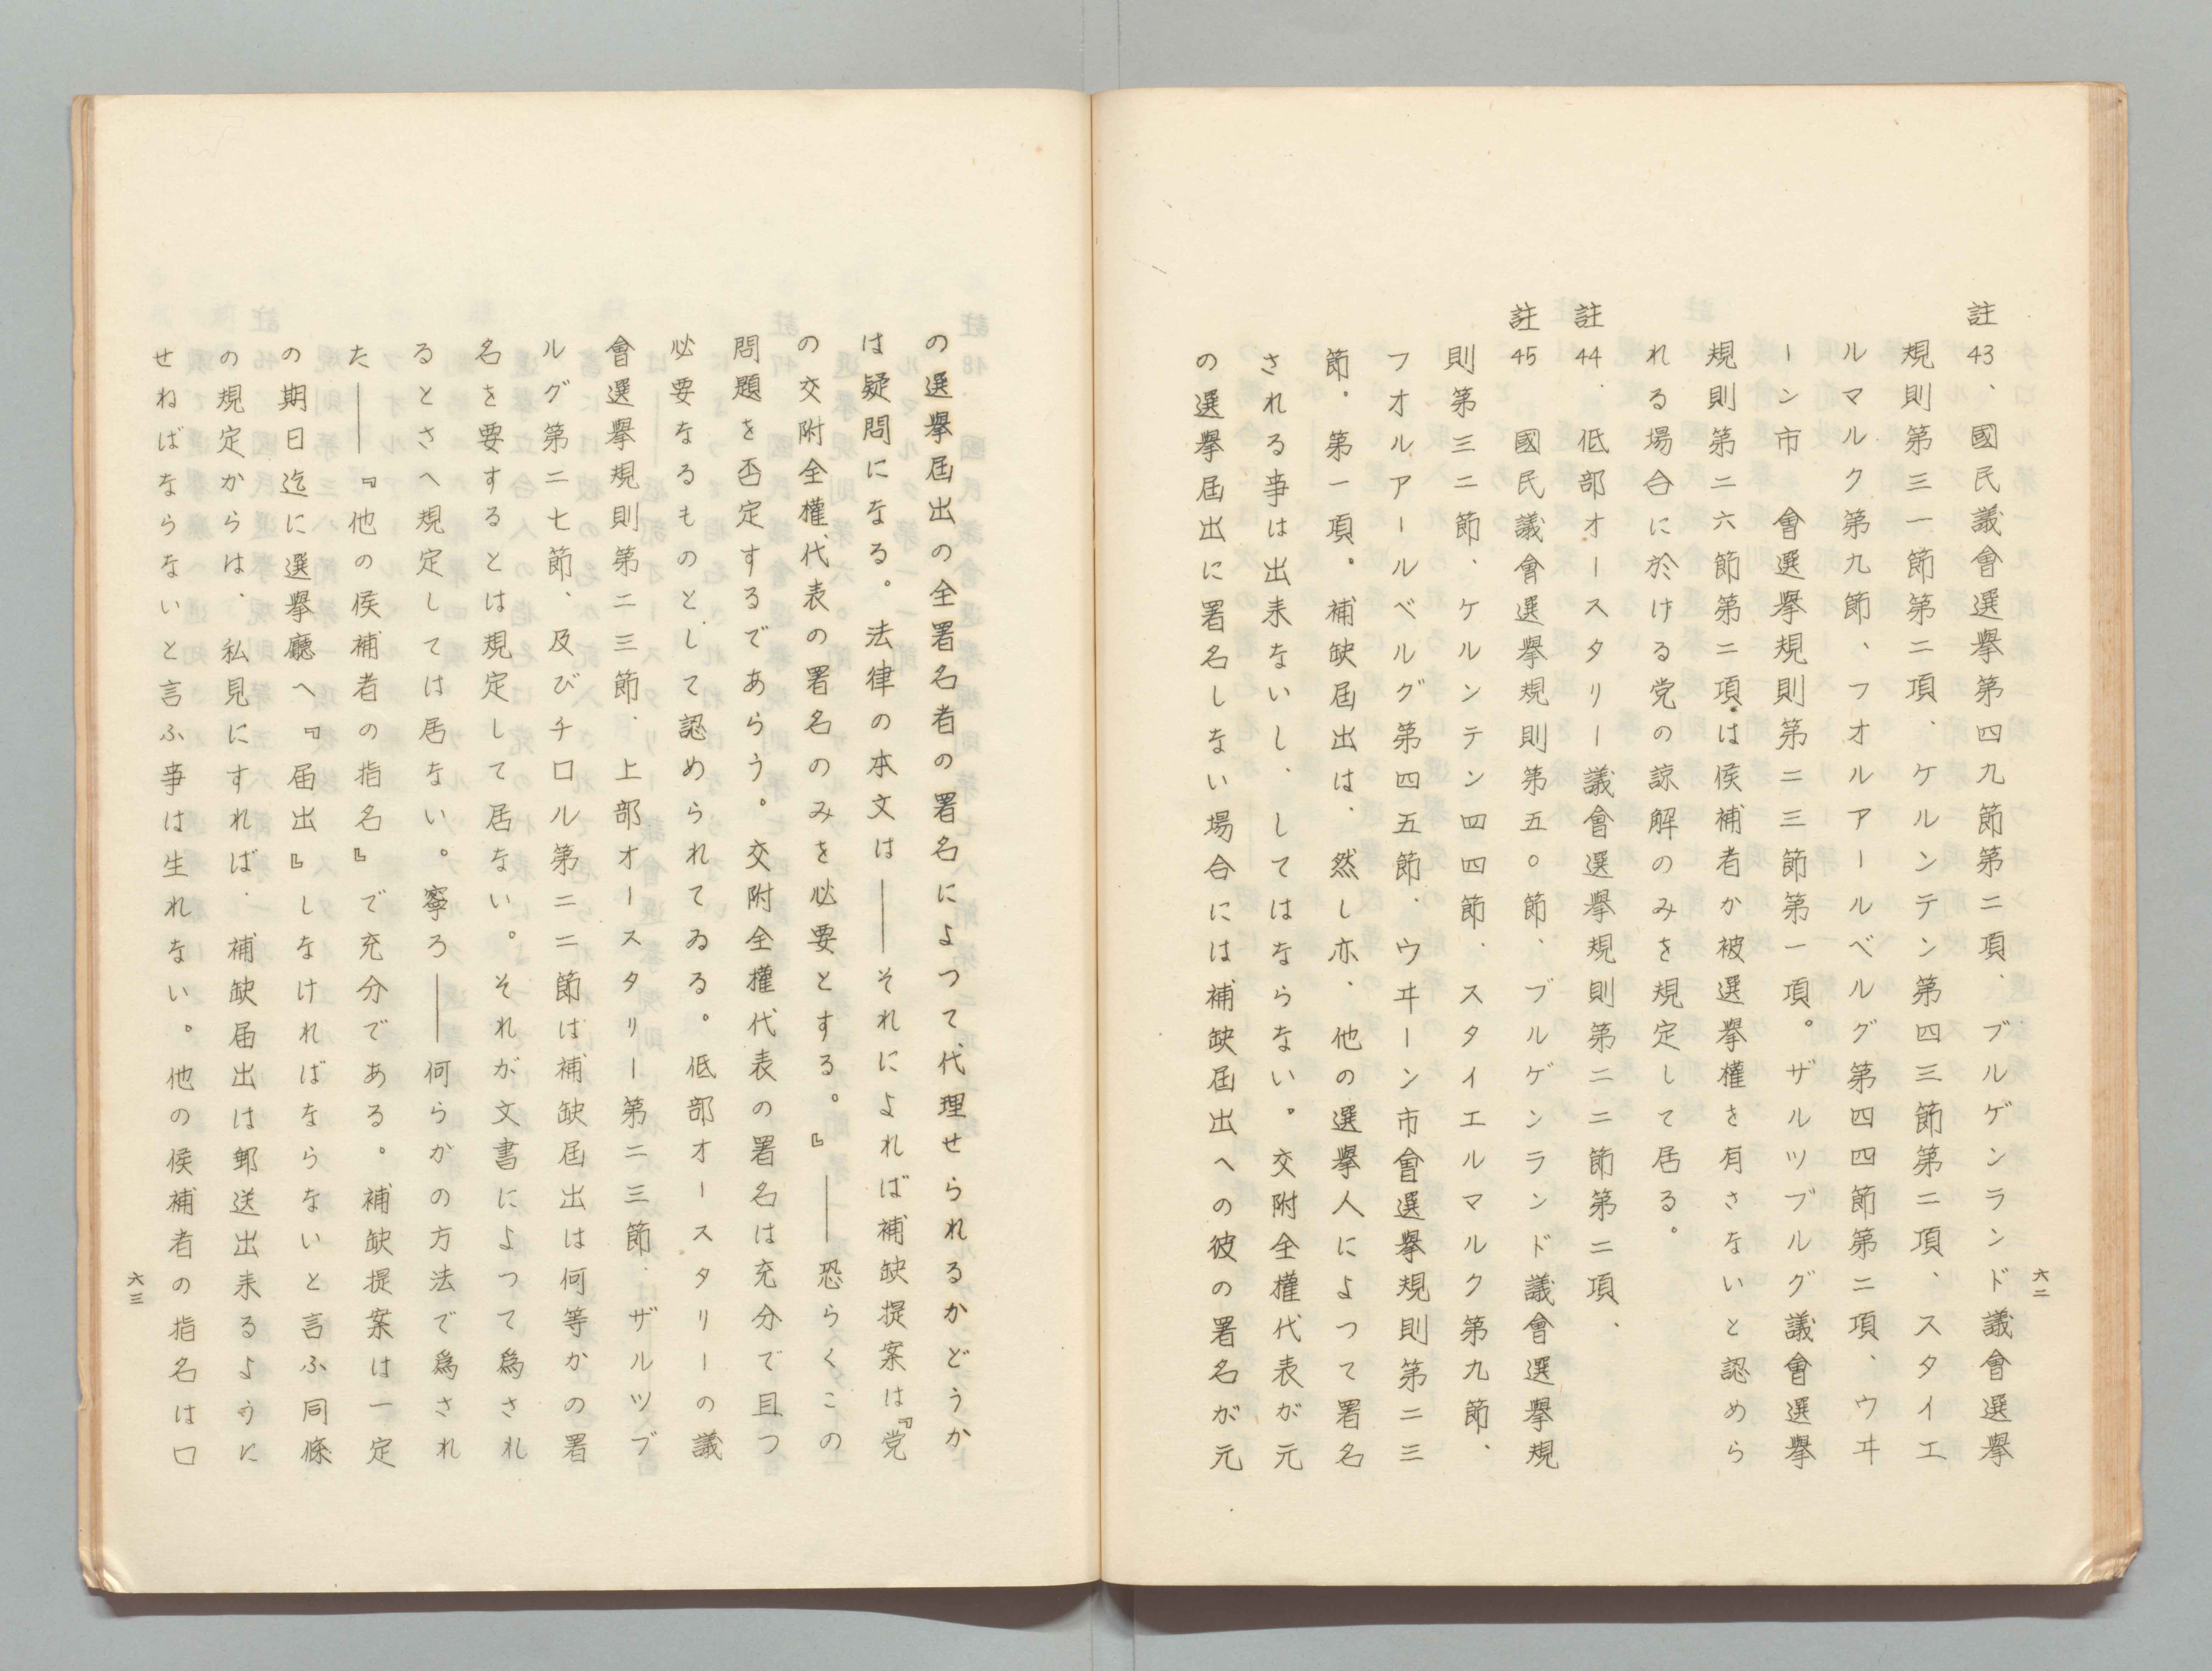 註43、國民議會選擧第四九節第二項、ブルゲンランド議會選擧
規則第三一節第二項、ケルンテン第四三節第二項、スタイエ
ルマルク第九節、フオルアールベルグ第四四節第二項、ウヰ
ーン市會選擧規則第二三節第一項。ザルツブルグ議會選擧
規則第二六節第二項は侯補者か被選擧權を有さないと認めら
れる場合に於ける党の諒解のみを規定して居る。
註44.低部オースタリー議會選擧規則第二二節第二項、
註45 國民議會選擧規則第五〇節、ブルゲンランド議會選擧規
則第三二節、ケルンテン四四節、スタイエルマルク第九節、
フオルアールベルグ第四五節、ウヰーン市會選擧規則第二三
節。第一項。補缺屆出は、然し亦、他の選擧人によつて署名
される事は出来ないし、してはならない。交附全權代表が元
の選擧屆出に署名しない場合には補缺屆出への彼の署名が元
六二
の選擧屆出の全署名者の署名によつて代理せられるかどうか
は疑問になる。法律の本文は——それによれば補缺提案は『党
の交附全權代表の署名のみを必要とする。』——恐らくこの
問題を否定するであらう。交附全權代表の署名は充分で且つ
必要なるものとして認められてゐる。低部オースタリーの議
會選擧規則第二三節、上部オースタリー第二三節、ザルツブ
ルグ第二七節、及びチロル第二二節は補缺屆出は何等かの署
名を要するとは規定して居ない。それが文書によつて爲され
るとさへ規定しては居ない。寧ろ——何らかの方法で爲され
た——『他の侯補者の指名』で充分である。補缺提案は一定
の期日迄に選擧廳へ『届出』しなければならないと言ふ同條
の規定からは、私見にすれば、補缺届出は郵送出来るように
せねばならないと言ふ事は生れない。他の侯補者の指名は口
六三